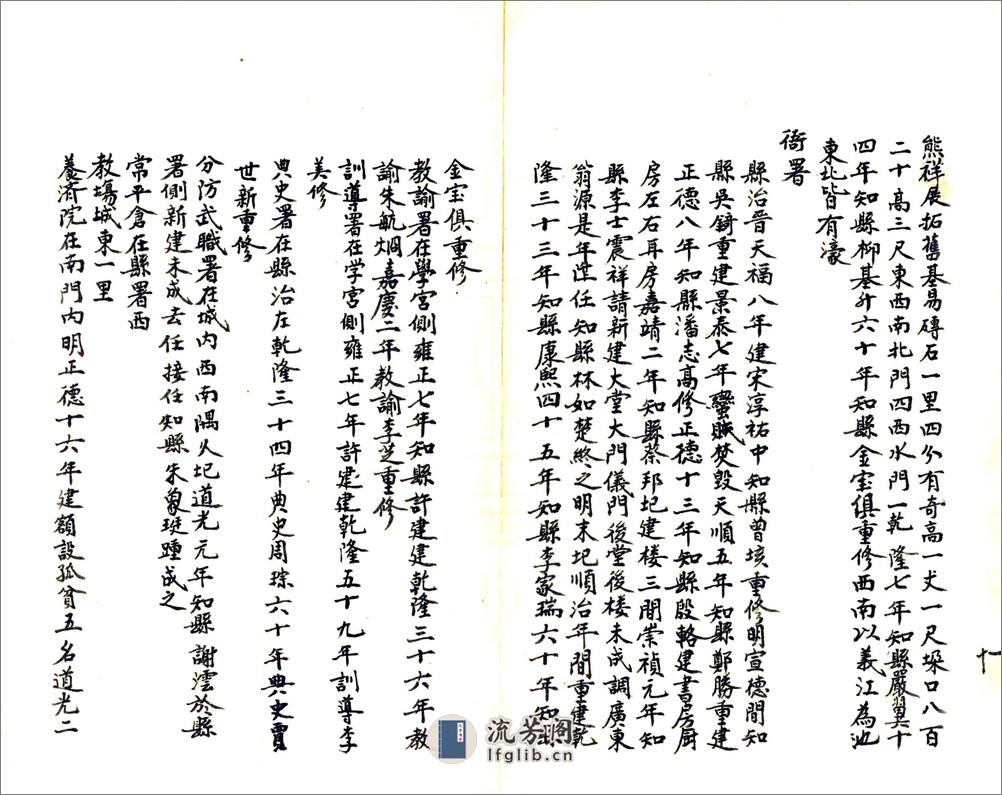 熊祥展拓舊基易磚石一里四分有奇高一丈一尺垛口八百
二十高三尺東西南北門四西水門一乾隆七年知縣嚴翼十
四年知縣柳基升六十年知縣金寶俱重修西南以義江為池
東北皆有濠
衙署
縣治晉天福八年建宋淳祐中知縣曾垓重修明宣德間知
縣吳錡重建景泰七年蠻賊焚毀天順五年知縣鄭勝重建
正德八年知縣潘志高修正德十三年知縣殷輅建書房厨
房左右耳房嘉靖二年知縣蔡邦圮建楼三間崇禎元年知
縣李士震祥請新建大堂大門儀門後堂後楼未成調廣東
翁源是年涖任知縣林如楚終之明末圮順治年間重建乾
隆三十三年知縣康熙四十五年知縣李家瑞六十年知縣
金宝俱重修
教諭署在學宮側雍正七年知縣許建建乾隆三十六年教
諭朱航烱嘉慶二年教諭李芝重修
訓導署在学宮側雍正七年許建建乾隆五十九年訓導李
美修
典史署在縣治左乾隆三十四年典史周琮六十年典史賈
世新重修
分防武職署在城内西南隅久圮道光元年知縣謝澐於縣
署側新建未成去任接任知縣朱象珽踵成之
常平倉在縣署西
教場城東一里
養済院在南門内明正德十六年建額設孤貧五名道光二
十一
流芳閣
lfglib.cn